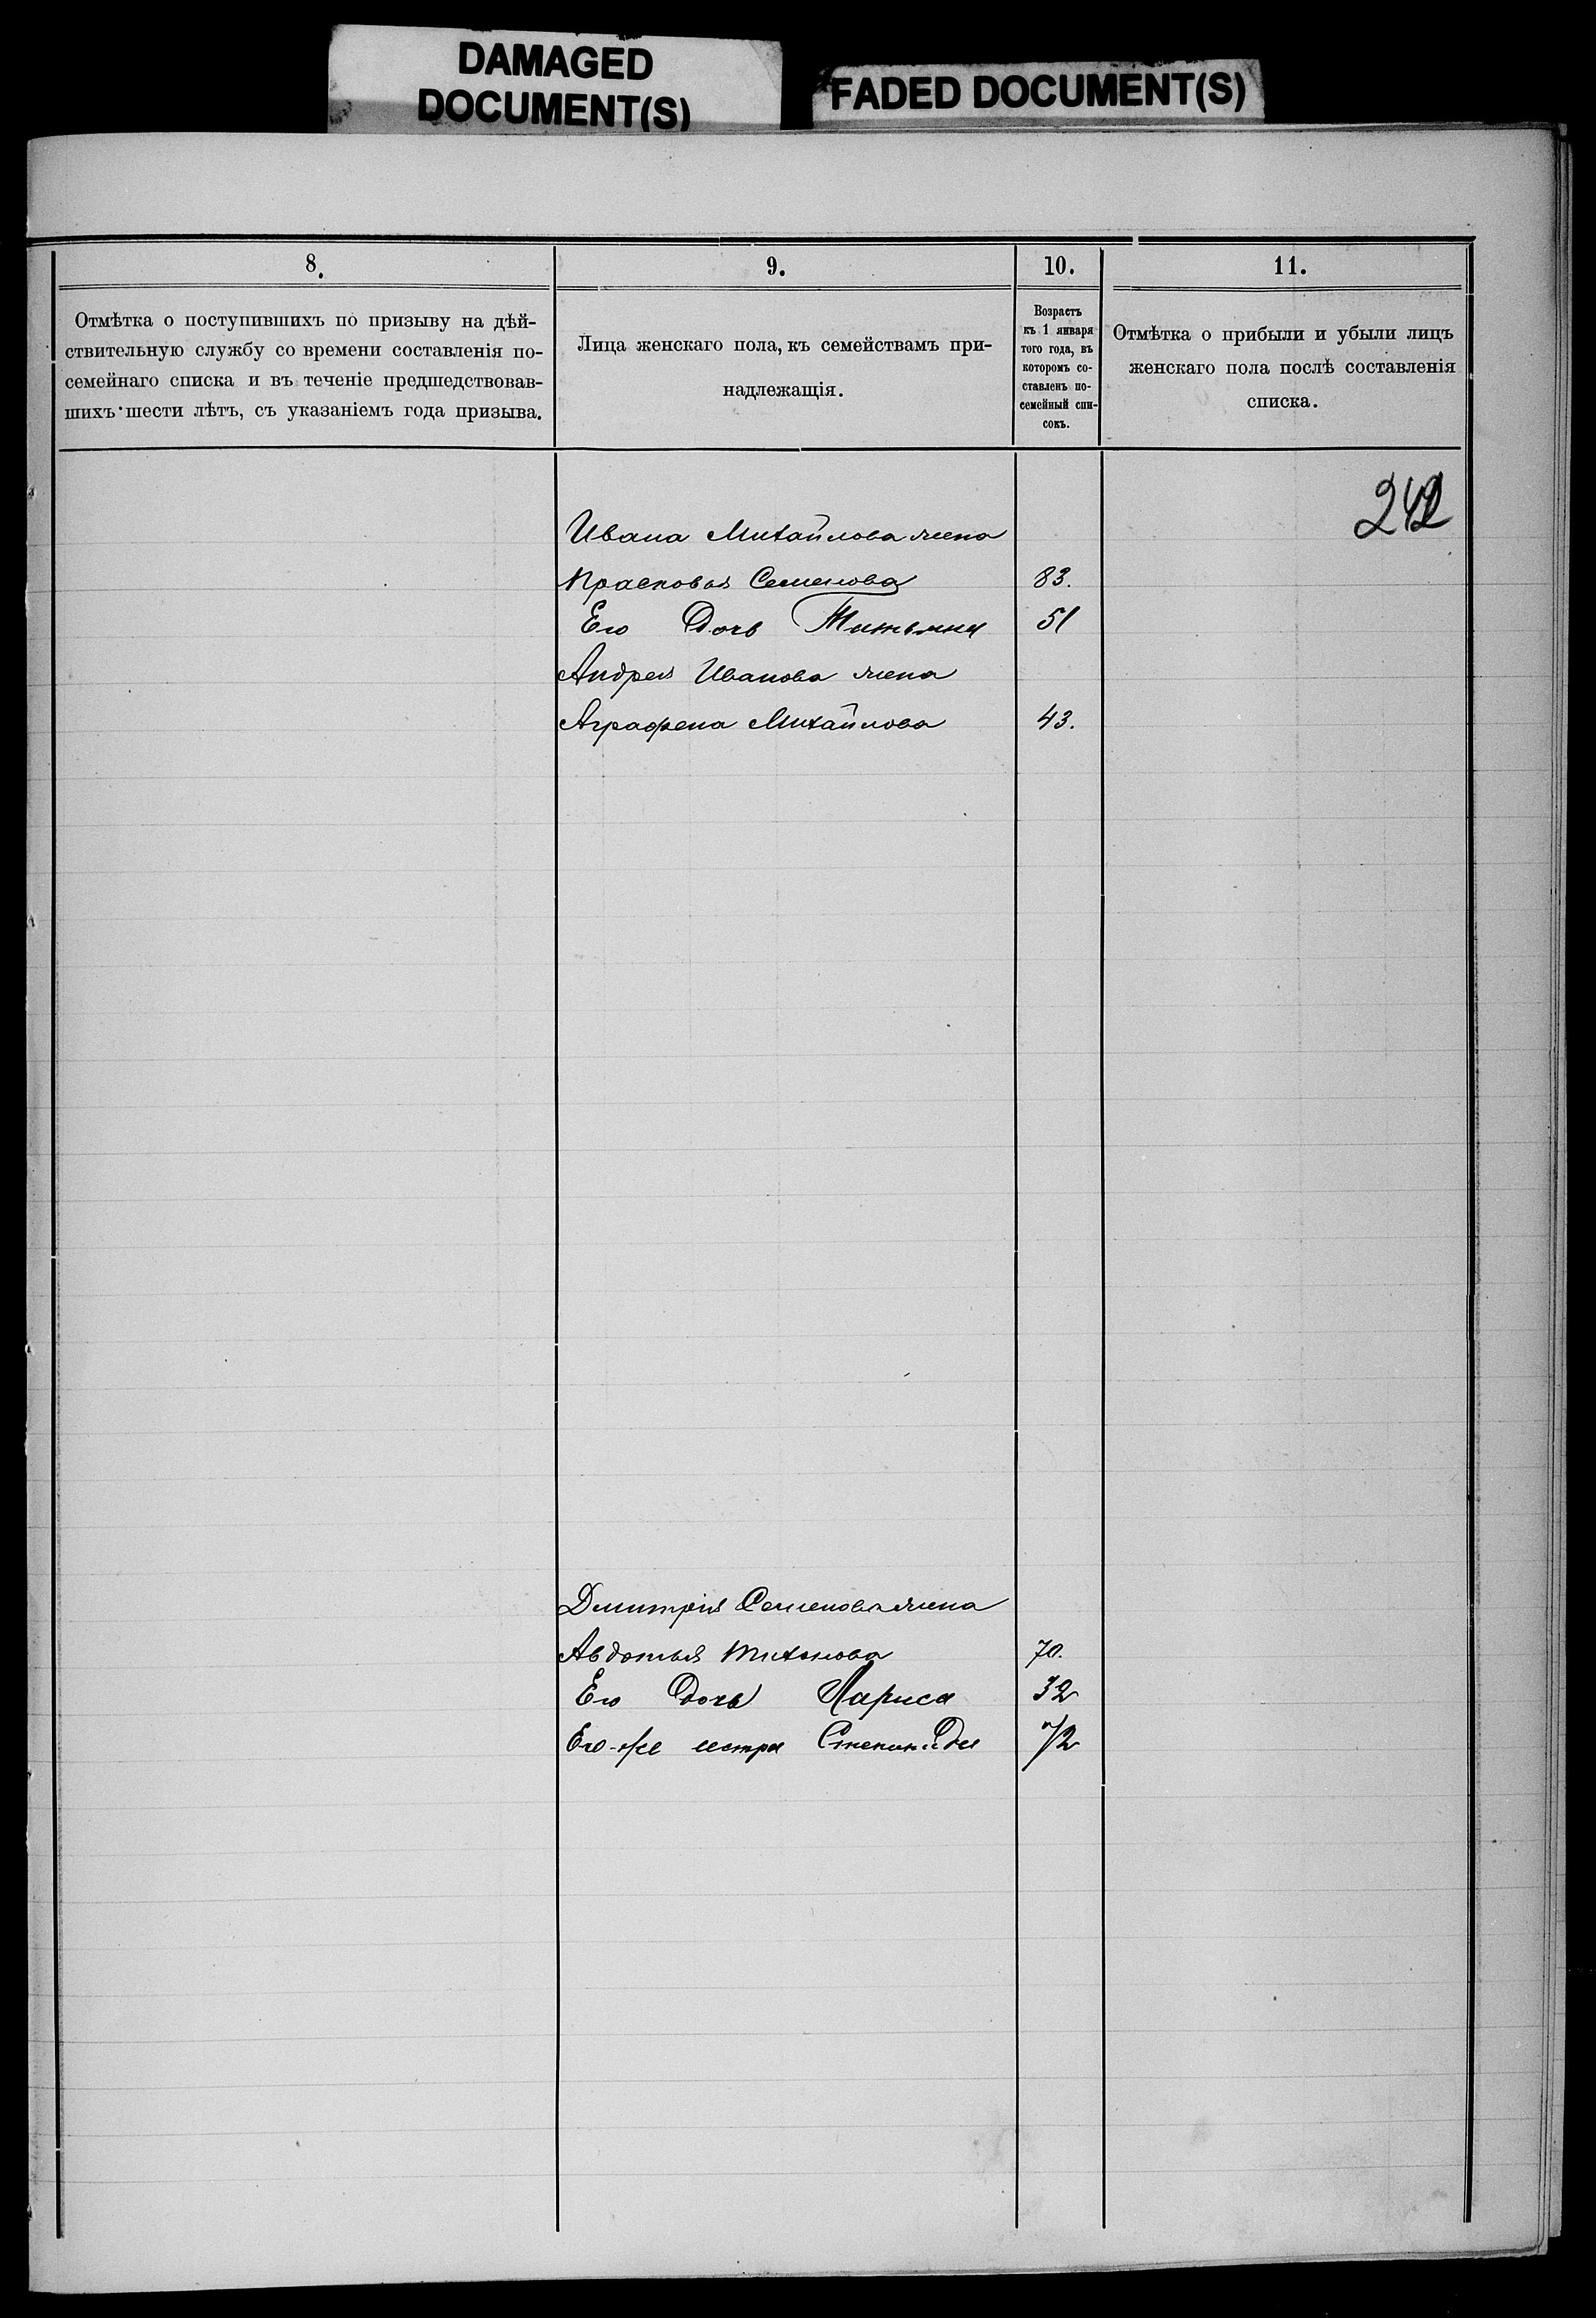 DAMAGED
DOCUMENT(S)
FADED DOCUMENT(S)
8.
9.
10.
11.
Отмѣтка о поступившихъ по призыву на дѣй-
ствительную службу со времени составленія по-
семейнаго списка и въ теченіе предшедствовав-
шихъ шести лѣтъ, съ указаніемъ года призыва.
Лица женскаго пола, къ семействамъ при-
надлежащія.
Возрастъ
къ 1 января
того года, въ
которомъ со-
ставленъ по-
семейный спи-
сокъ.
Отмѣтка о прибыли и убыли лицъ
женскаго пола послѣ составленія
списка.
242
Ивана Михайлова жена
Прасковья Семенова 83.
Его Дочь Татьяна 51
Андрея Иванова жена
Аграфена Михайлова 43.
Дмитрія Семенова жена
Авдотья Тихонова 70.
Его дочь Лариса 32
Его-же сестра Степанида 72